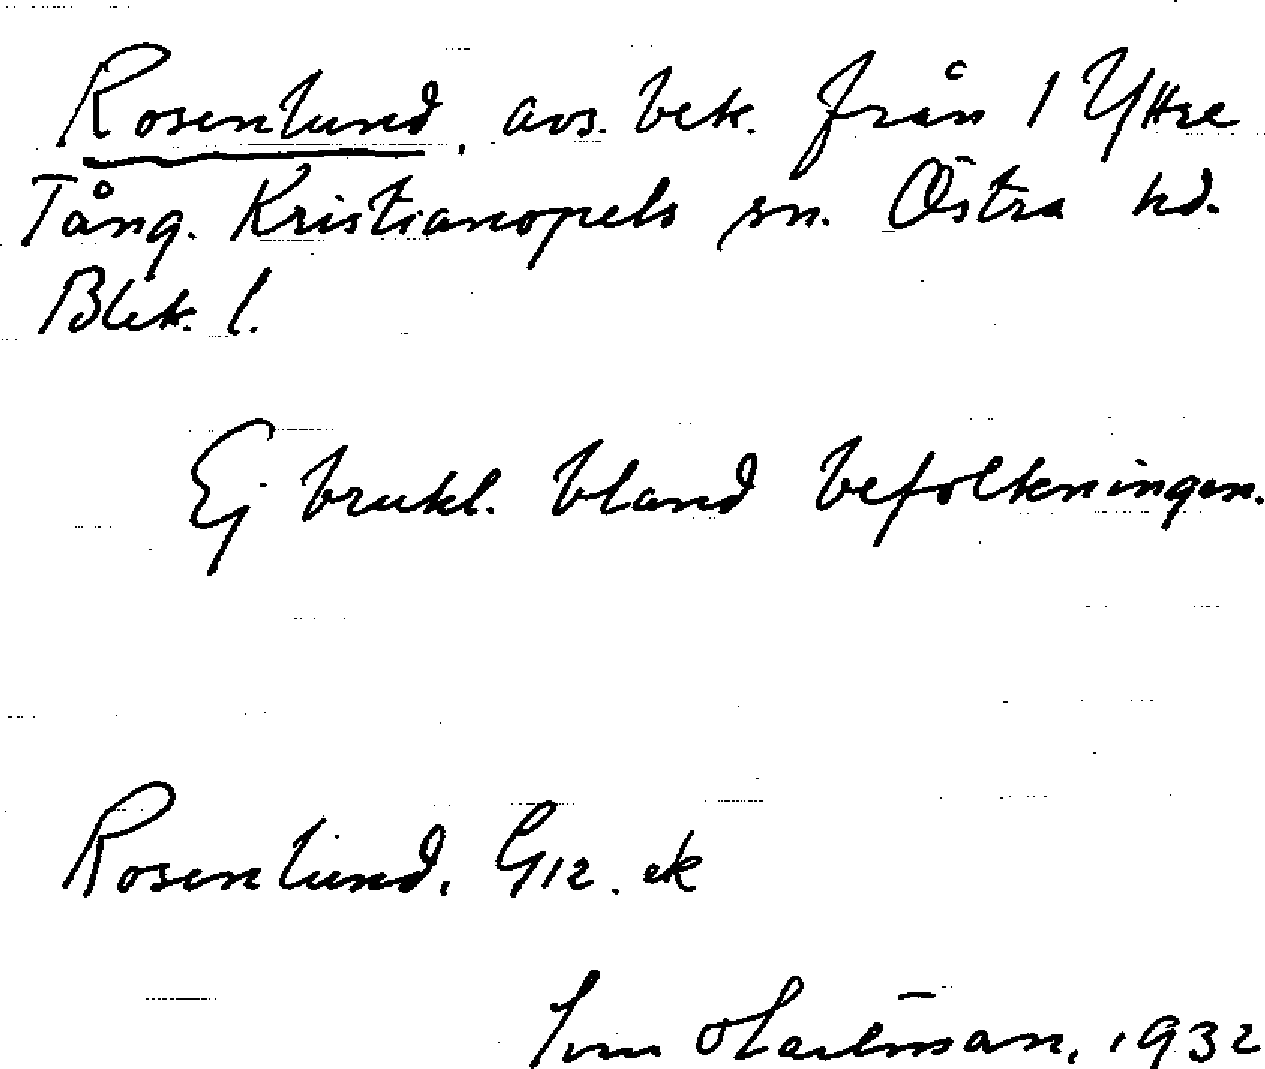 Rosenlund, avs. bek. från 1 Yttre
Tång. Kristianopels sn. Östra hd.
Blek. l.
Ej brukl. bland befolkningen.
Rosenlund. G12. ek
1932